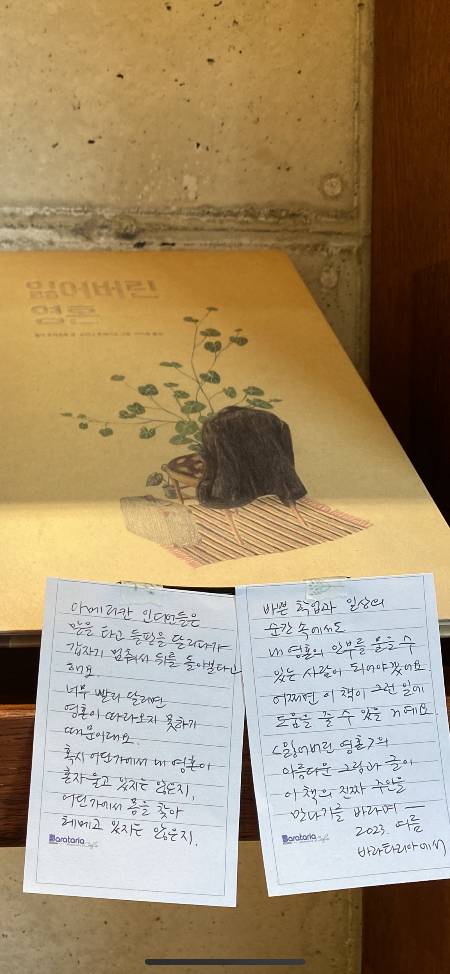 잃어버린
영혼
아메리칸 인디언들은
말을 타고 들판을 달리다가
갑자기 멈춰서 뒤를 돌아본다고
해요
너무 빨리 달리면
영혼이 따라오지 못하기
때문이래요
혹시 어딘가에서 내 영혼이
혼자 울고 있지는 않은지,
어딘가에서 몸을 찾아
헤매고 있지는 않은지.
Barataria
바쁜 학업과 일상의
순간 속에서도
내 영혼의 안부를 물을 수
있는 사람이 되어야겠어요
어쩌면 이 책이 그런 일에
도움을 줄 수 있을 거예요.
<잃어버린 영혼>의
아름다운 그림과 글이
이 책의 진짜 주인을
만나기를 바라며 —
2023. 여름
Barataria
바라타리아에서